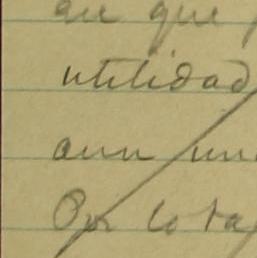 que
utilidad
aun un
Por lo ta